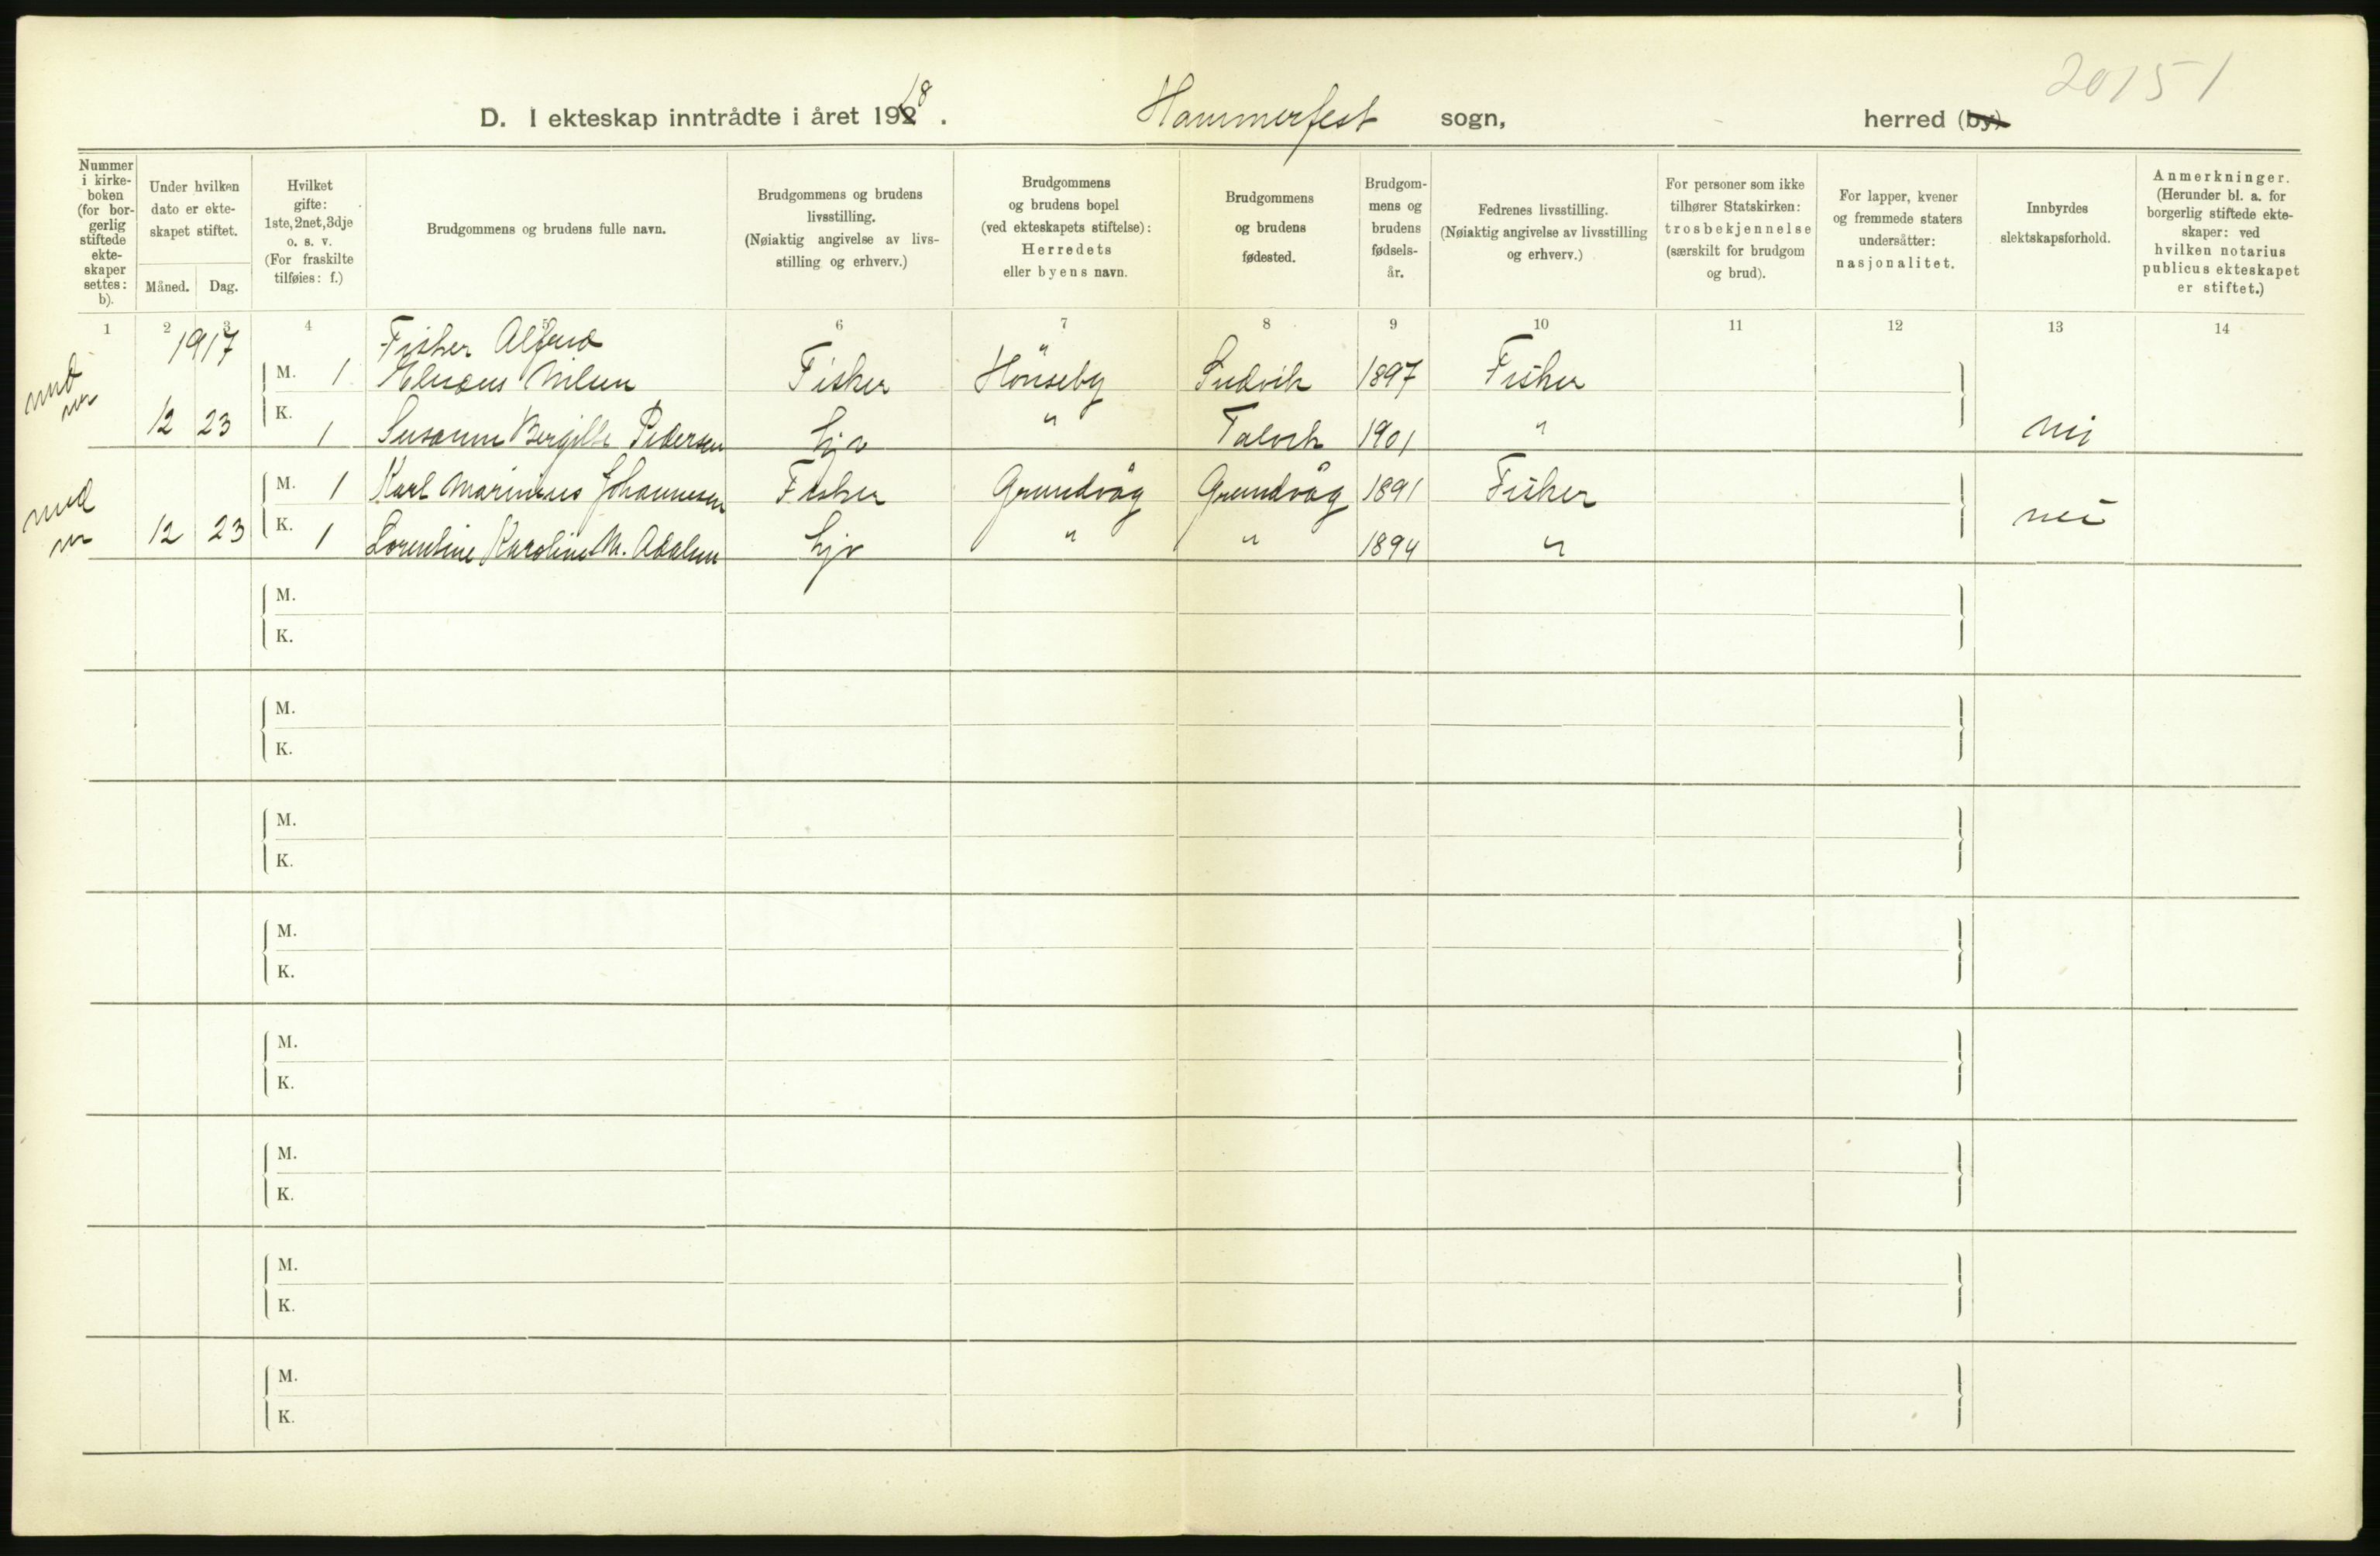 20151
D. I ekteskap inntrådte i året 1918. Hammerfest sogn, herred (by)
Nummer i kirke-boken (for bor-gerlig stiftede ekte-skaper settes: b).
Under hvilken dato er ekte-skapet stiftet.
Måned. Dag.
Hvilket gifte: 1ste, 2net, 3dje o. s. v. (For fraskilte tilføies: f.)
Brudgommens og brudens fulle navn.
Brudgommens og brudens livsstilling. (Nøiaktig angivelse av livs-stilling og erhverv.)
Brudgommens og brudens bopel (ved ekteskapets stiftelse): Herredets eller byens navn.
Brudgommens og brudens fødested.
Brudgom-mens og brudens fødsels-år.
Fedrenes livsstilling. (Nøiaktig angivelse av livsstilling og erhverv.)
For personer som ikke tilhører Statskirken: trosbekjennelse (særskilt for brudgom og brud).
For lapper, kvener og fremmede staters undersåtter: nasjonalitet.
Innbyrdes slektskapsforhold.
Anmerkninger. (Herunder bl. a. for borgerlig stiftede ekte-skaper: ved hvilken notarius publicus ekteskapet er stiftet.)
1 2 3 4 5 6 7 8 9 10 11 12 13 14
1917
Fisker Alfred
M. 1 Nilsen Fisker Hönseby 1897 Fisker
12 23 K. 1 Susanne Bergitte Pedersen " Talvik 1901 " nei
M. 1 Karl Marinius Johannesen Fisker Grundvåg Grundvåg 1891 Fisker nei
12 23 K. 1 Lorentine Karoline M. " " 1894 "
M.
K.
M.
K.
M.
K.
M.
K.
M.
K.
M.
K.
M.
K.
M.
K.